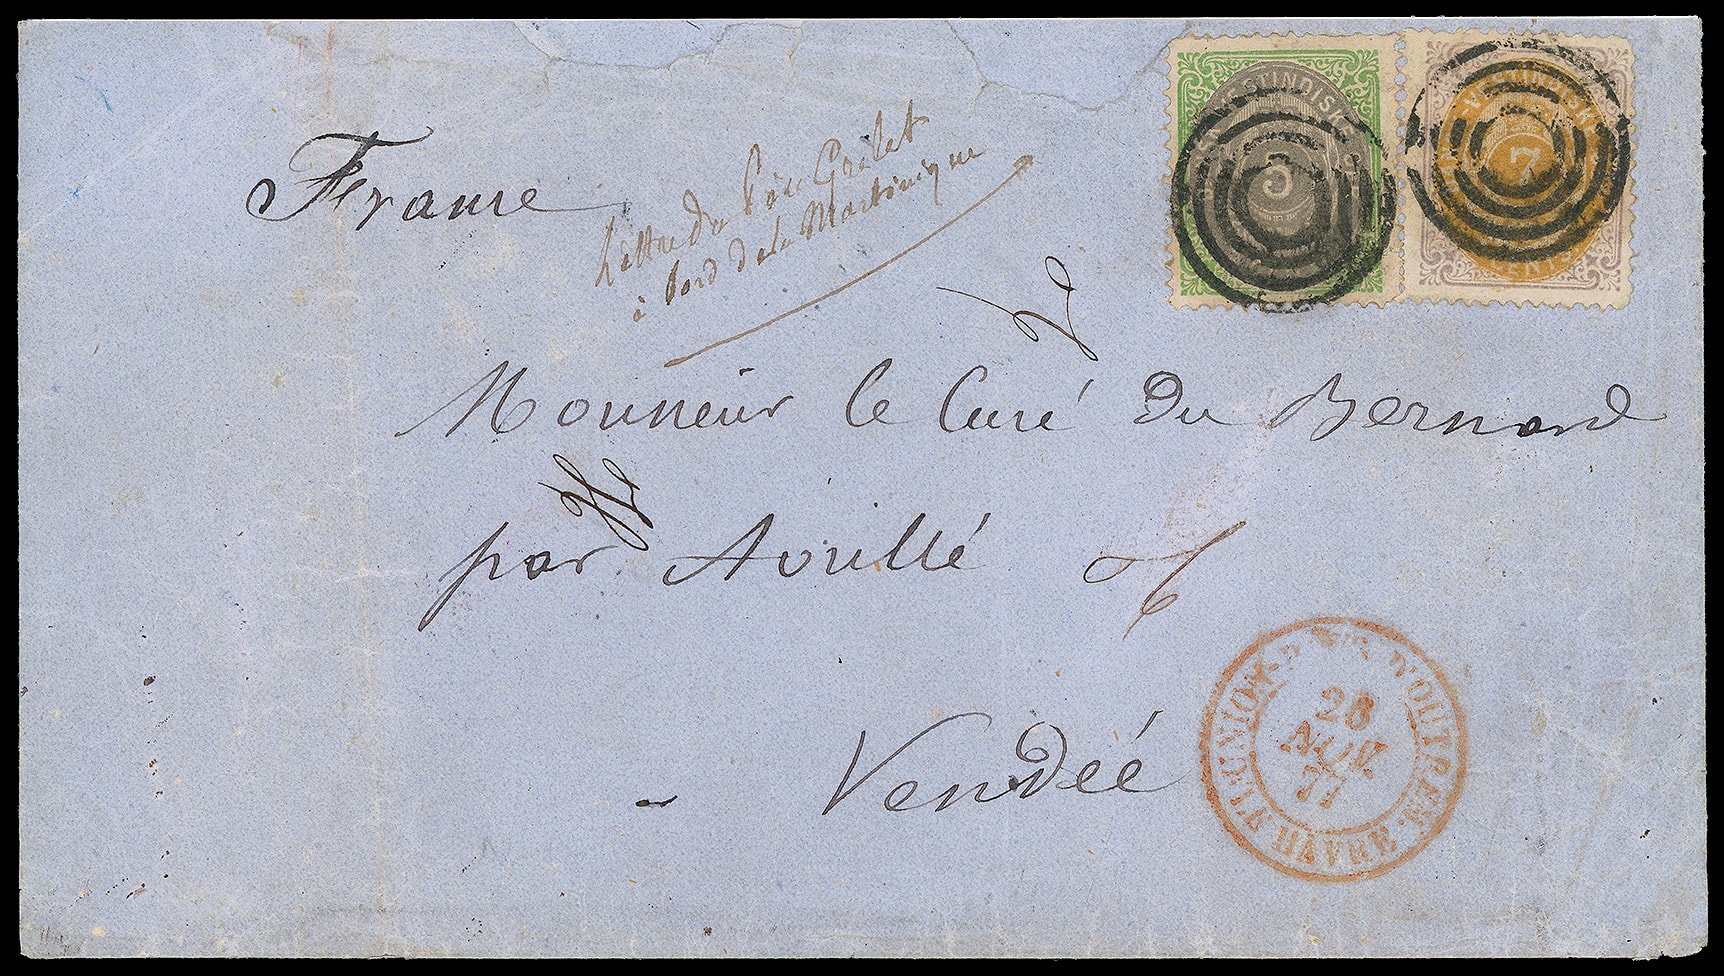 France
Lettre du Père Grelet
à bord de la Martinique
Monsieur le Curé du Bernard
par Avrillé
Vendée
VESTINDISK
5
VESTINDISKE
7
CENTS
D'OUTREM.
HAVRE
28
NOV.
77